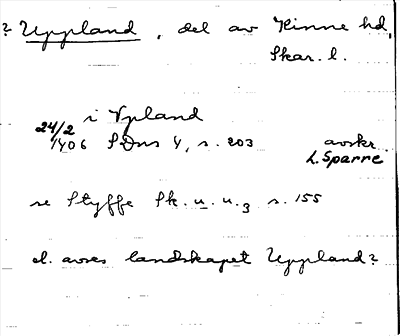 ? Uppland, del av Kinne hd,
Skar. l.
i Vpland
24/2
1406 SDns 4, s. 203 avskr.
L. Sparre
se Styffe Sk. u. u.3 s. 155
el. avses landskapet Uppland?